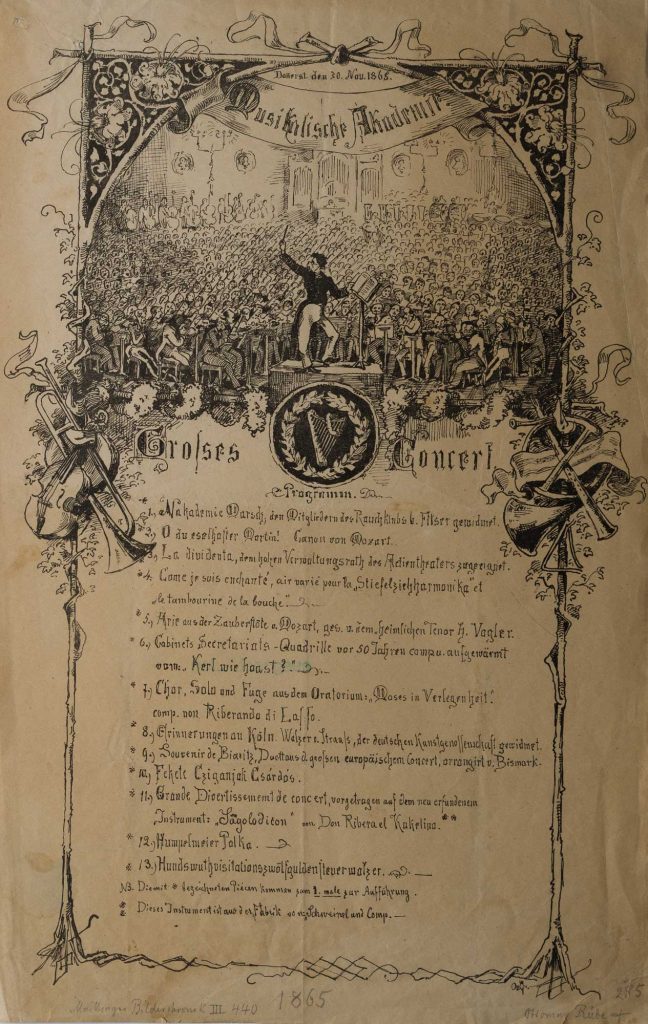 Donerst. den 30. Nov. 1865.
Musikalische Akademie.
Grosses Concert
Programm.
* 1.) Akademie Marsch, den Mitgliedern des Rauchklubs b. Filser gewidmet.
* 2.) O du eselhafter Martin! Canon von Mozart.
* 3.) La dividenta, dem hohen Verwaltungsrath des Actientheaters zugeeignet.
* 4. Come je suis enchanté, air varié pour la „Stiefelziehharmonika" et
„le tambourine de la bouche".
* 5.) Arie aus der Zauberflöte v. Mozart, ges. v. dem heimlichen Tenor H. Vogler.
* 6.) Cabinets Secretariats-Quadrille vor 50 Jahren comp. u. aufgewärmt
vom: „Kerl wie haast?"
* 7.) Chor, Solo und Fuge aus dem Oratorium: „Moses in Verlegenheit".
comp. von Riberando di Lasso.
* 8.) Erinnerungen an Köln. Walzer v. Strauss, der deutschen Kunstgenossenschaft gewidmet.
* 9.) Souvenir de Biaritz, Duett aus d. grossen europäischem Concert, arrangirt v. Bismark.
* 10.) Fekete Cziganjak Csárdás.
* 11.) Grande Divertissement de concert, vorgetragen auf dem neu erfundenem
Instrument: „Sägolodicon" von Don Ribera el Kukelino. **
* 12.) Humpelmeier Polka.
* 13.) Hundswuthvisitationszwölfguldensteuerwalzer.
NB. Die mit * bezeichneten Piècen kommen zum 1. male zur Aufführung.
** Dieses Instrument ist aus der Fabrik von und Comp.
Maillinger Bilderchronik III. 440
1865